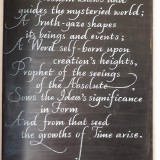 guides the mysteried world;
A Truth-gaze shapes
its beings and events;
A Word self-born upon
creation's heights,
Prophet of the seeings
of the Absolute
Sows the Idea's significance
in Form
And from that seed
the growths of Time arise.